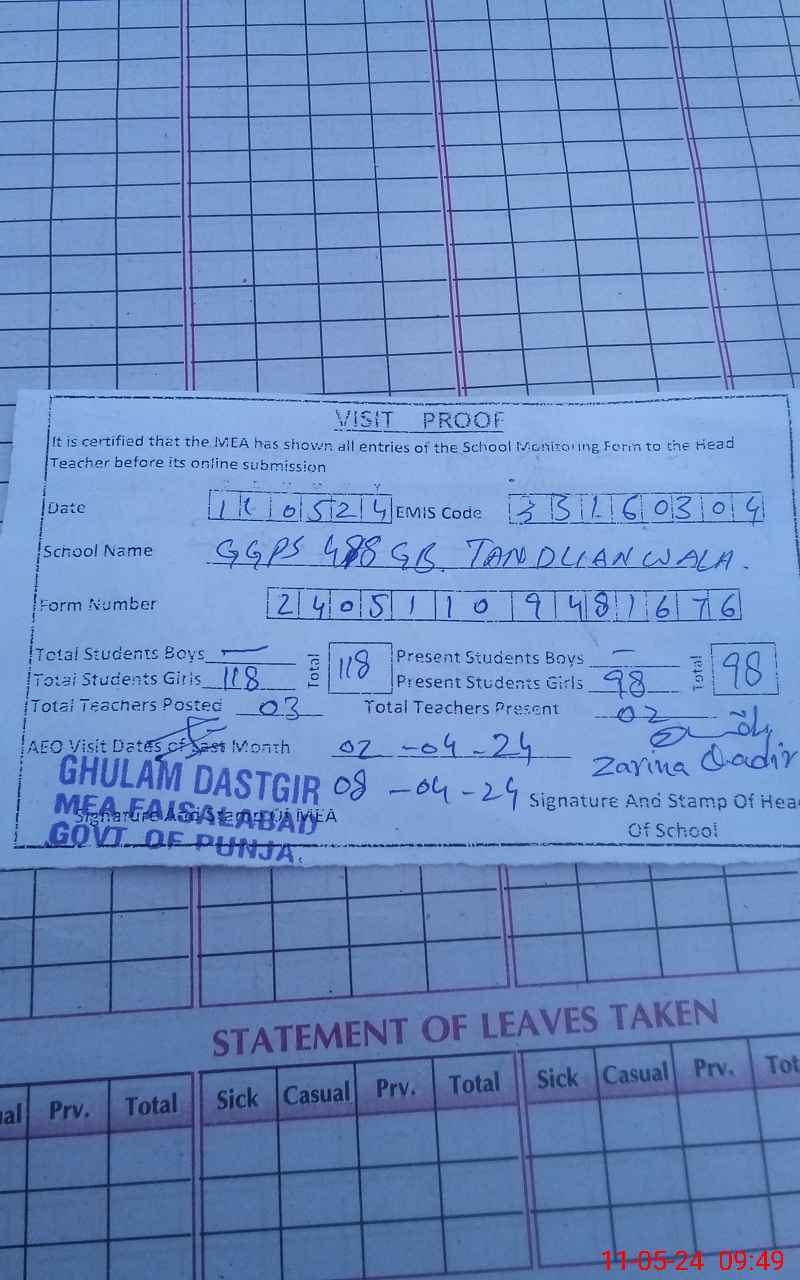 VISIT PROOF
It is certified that the MEA has shown all entries of the School Monitoring Form to the Head
Teacher before its online submission
Date 110524 EMIS Code 33160304
School Name GGPS 488 GB. TANDLIANWALA.
Form Number 24051109481676
Total Students Boys — Total 118 Present Students Boys — Total 98
Total Students Girls 118 Present Students Girls 98
Total Teachers Posted 03 Total Teachers Present 02
AEO Visit Dates of Last Month 02-04-24
Zarina Qadir
08-04-24
GHULAM DASTGIR
MEA FAISALABAD
GOVT. OF PUNJA.
Signature And Stamp Of MEA
Signature And Stamp Of Hea
Of School
STATEMENT OF LEAVES TAKEN
ual Prv. Total Sick Casual Prv. Total Sick Casual Prv. Tot
11-05-24 09:49